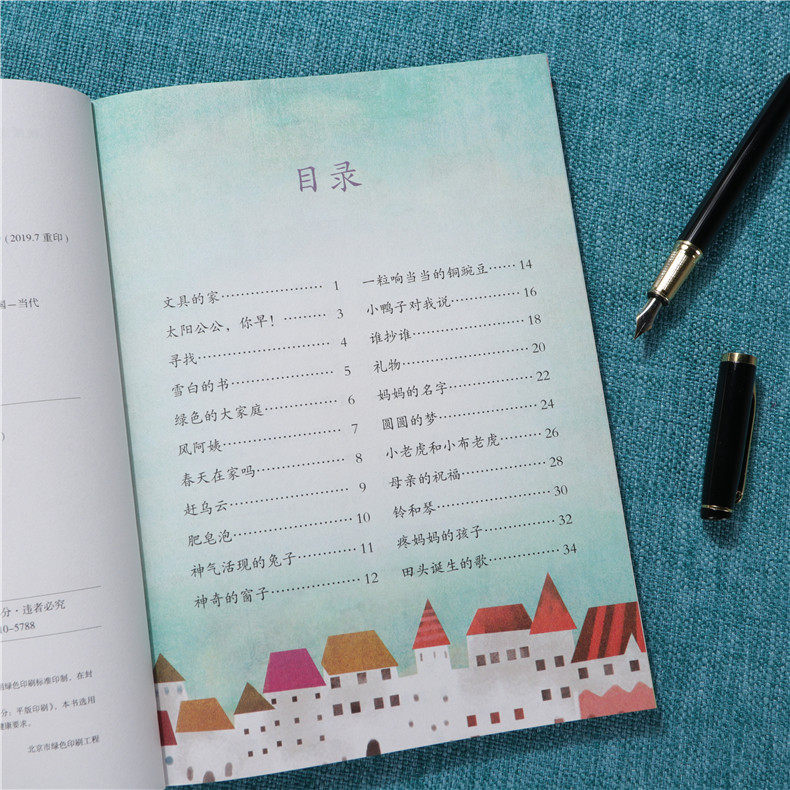 (2019.7 重印)
国—当代
)
分·违者必究
10-5788
用绿色印刷标准印制，在封
分：平版印刷》，本书选用
健康要求。
北京市绿色印刷工程
目录
文具的家…………………… 1
太阳公公，你早！……… 3
寻找…………………… 4
雪白的书…………………… 5
绿色的大家庭…………… 6
风阿姨…………………… 7
春天在家吗…………… 8
赶乌云…………………… 9
肥皂泡…………………… 10
神气活现的兔子………… 11
神奇的窗子…………… 12
一粒响当当的铜豌豆…… 14
小鸭子对我说………… 16
谁抄谁…………………… 18
礼物…………………… 20
妈妈的名字…………… 22
圆圆的梦…………… 24
小老虎和小布老虎……… 26
母亲的祝福…………… 28
铃和琴…………………… 30
疼妈妈的孩子………… 32
田头诞生的歌………… 34